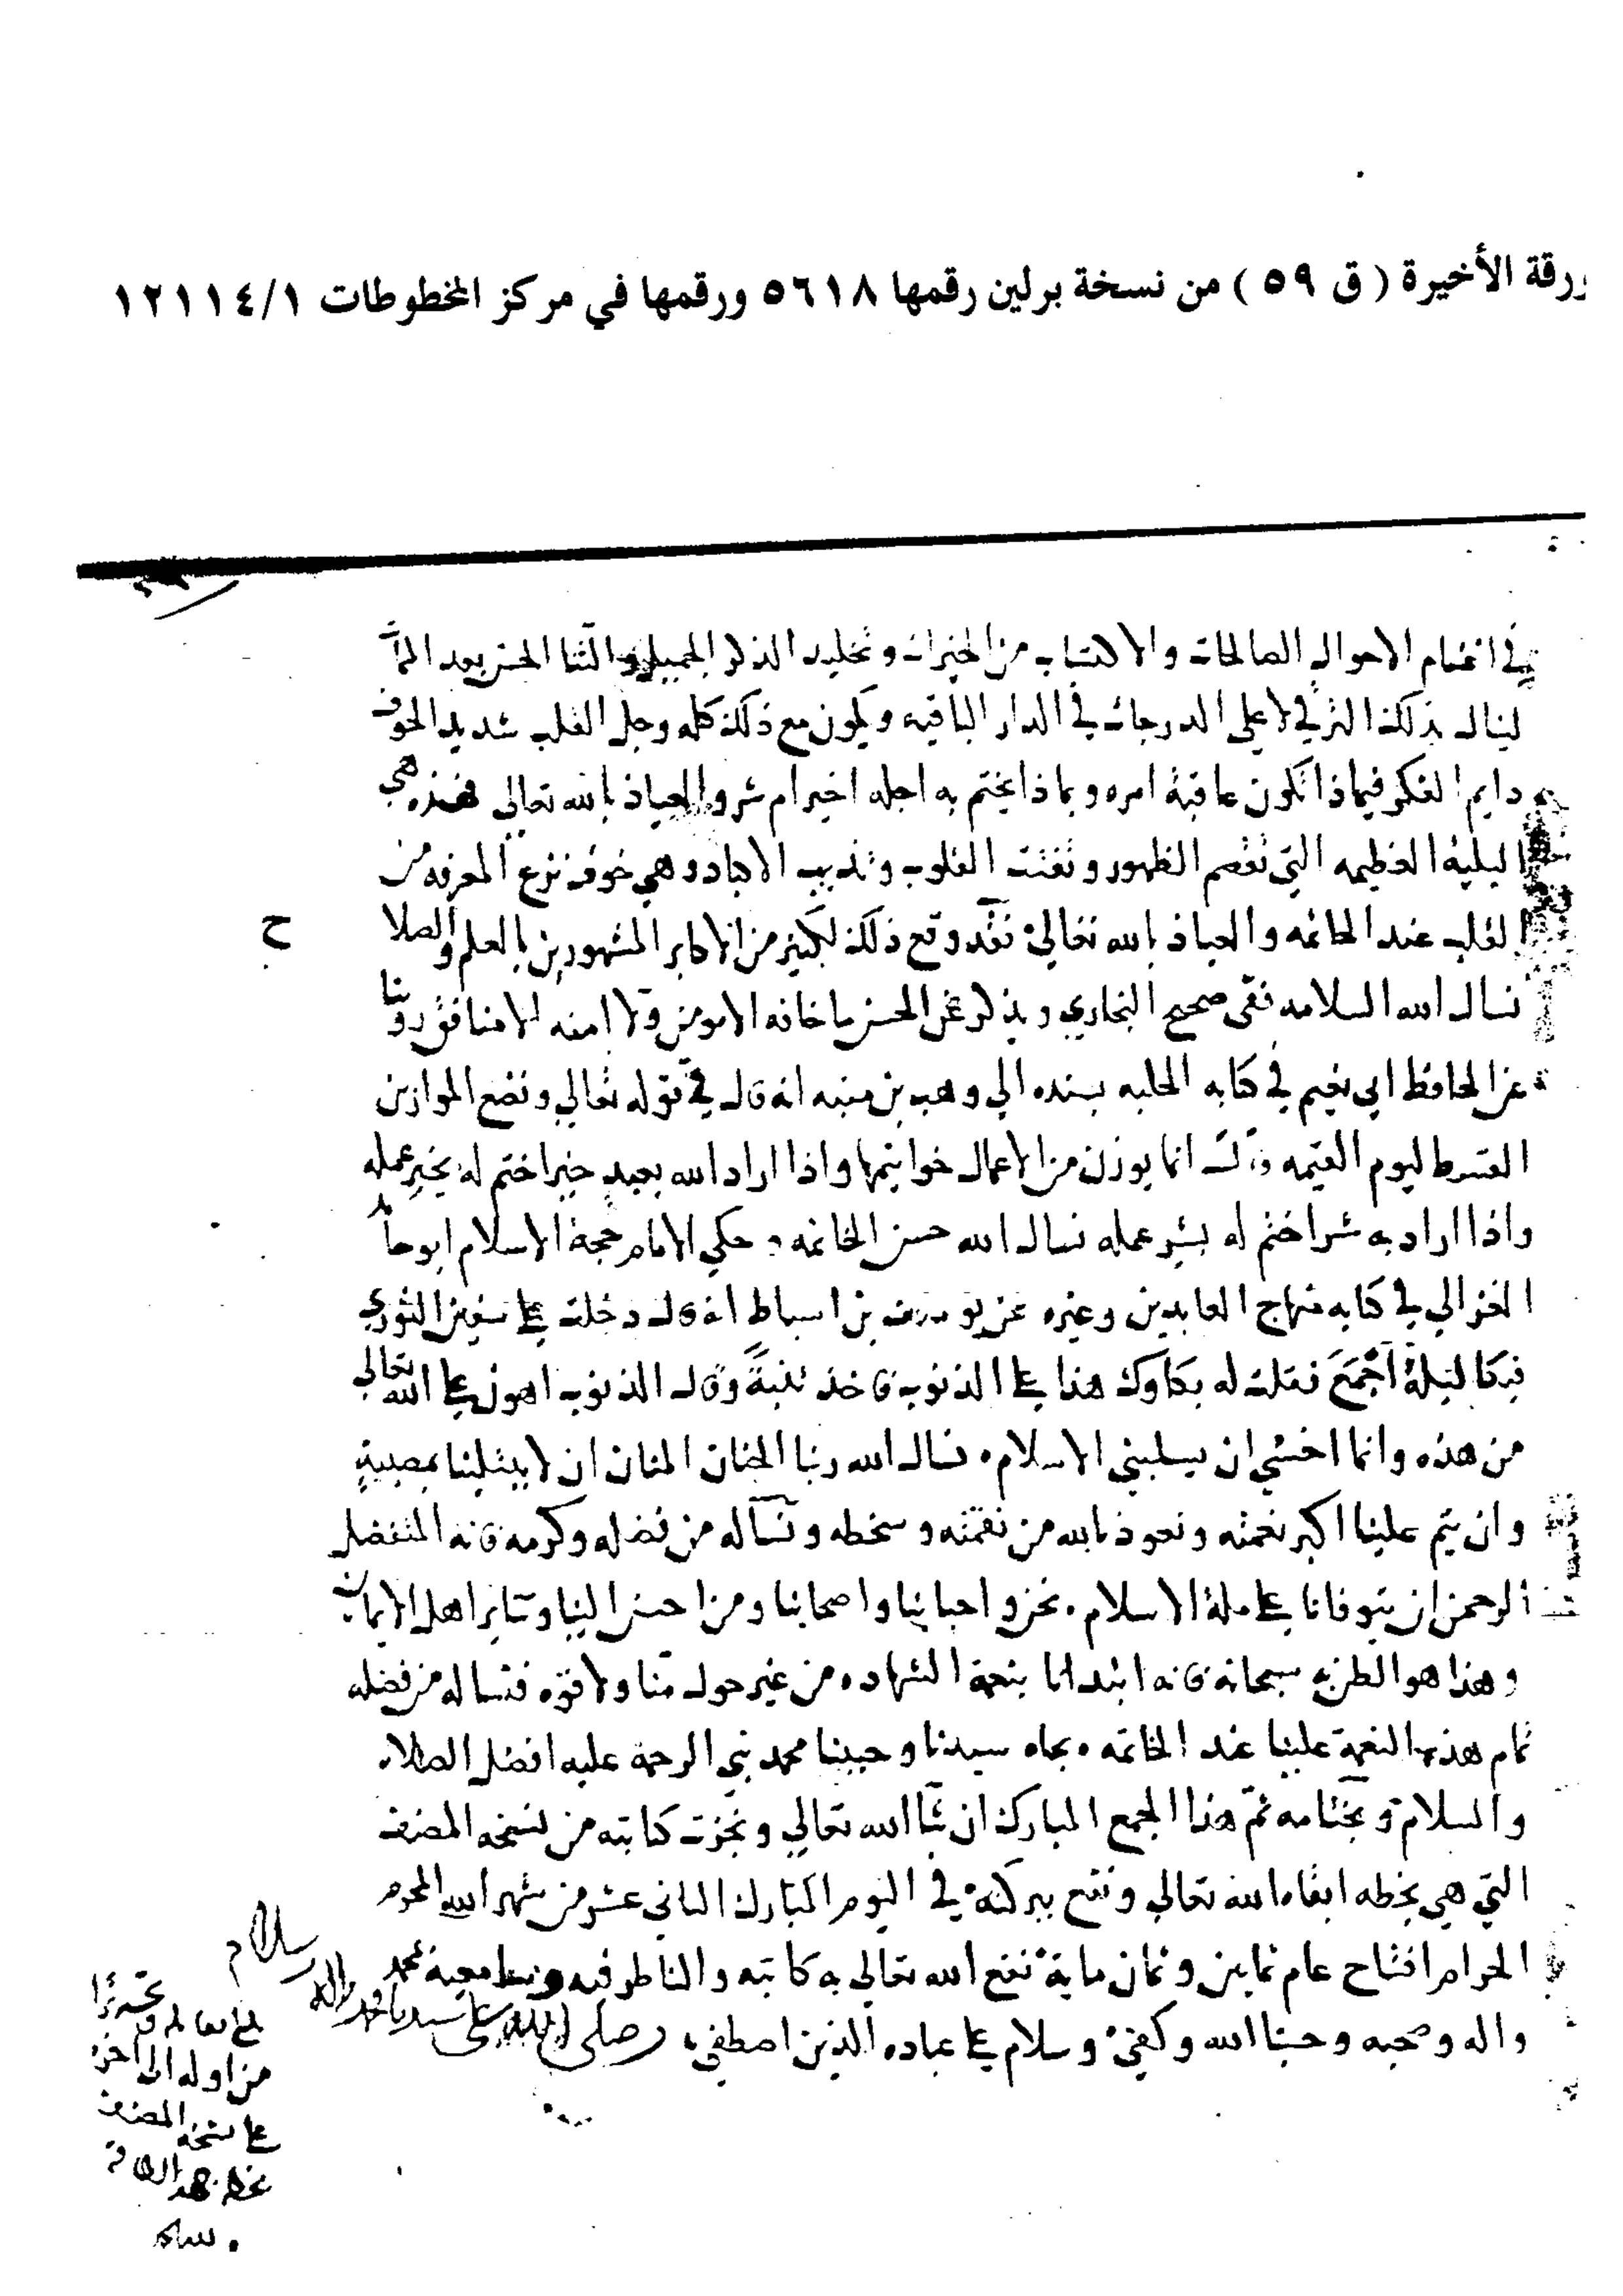 ورقة الأخيرة ( ق ٥٩ ) من نسخة برلين رقمها ٥٦١٨ ورقمها في مركز المخطوطات ١٢١١٤/١
في اغتنام الاحوال الصالحات والاكتساب من الخيرات وتخليد الذكر الجميل والثنا الحسن بعد المما
لينال بذلك الترقي لاعلى الدرجات في الدار الباقيه ويكون مع ذلك كله وجل القلب شديد الخوف
دايم الفكر فيماذا تكون عاقبة امره وبماذا يختم به اجله اخير ام شر والعياذ بالله تعالى فهذه هي
البلية العظيمه التي تقصم الظهور وتفتت القلوب وتذيب الاكباد وهي خوف نزع المعرفه من
القلب عند الخاتمه والعياذ بالله تعالى فقد وقع ذلك لكثير من الاكابر المشهورين بالعلم والصلا
ح
نسال الله السلامه ففي صحيح البخاري ويذكر عن الحسن ما خافه الا مومن ولا امنه الا منافق روينا
عن الحافظ ابي نعيم في كتابه الحليه بسنده الي وهب بن منبه انه قال في قوله تعالي ونضع الموازين
القسط ليوم القيمه قال انما يوزن من الاعمال خواتيمها واذا اراد الله بعبد خيرا ختم له بخير عمله
واذا اراد به شرا ختم له بشر عمله نسال الله حسن الخاتمه وحكي الامام حجة الاسلام ابو حامد
الغزالي في كتابه منهاج العابدين وغيره عن يوسف بن اسباط انه قال دخلت على سفين الثوري
فبكا ليلة اجمع فقلت له بكاوك هذا على الذنوب فاخذ تبنة وقال الذنوب اهون على الله تعالي
من هذه وانما اخشي ان يسلبني الاسلام نسال الله ربنا الحنان المنان ان لا يبتلينا بمصيبة
وان يتم علينا اكبر نعمته ونعوذ بالله من نقمته وسخطه ونسأله من فضله وكرمه فانه المتفضل
الرحمن ان يتوفانا على ملة الاسلام نحن واحبابنا واصحابنا ومن احسن الينا وساير اهل الايمان
وهذا هو الظن به سبحانه فانه ابتدانا بنعمة الشهاده من غير حول منا ولا قوه فنساله من فضله
تمام هذه النعمة علينا عند الخاتمه بجاه سيدنا وحبيبنا محمد نبي الرحمة عليه افضل الصلاه
والسلام وبختامه تم هذا الجمع المبارك ان شا الله تعالي ونجزت كتابته من نسخه المصنف
التي هي بخطه ابقاه الله تعالي ونفع ببركته في اليوم المبارك الثاني عشر من شهر الله المحرم
الحرام افتتاح عام ثمانين وثمان ماية نفع الله تعالي به كاتبه والناظر فيه محمد
واله وصحبه وحسبنا الله وكفي وسلام على عباده الذين اصطفي وصلى الله على سيدنا محمد واله وسلم
بلغ مقابله وتحريرا
من اوله الى اخره
على نسخة المصنف